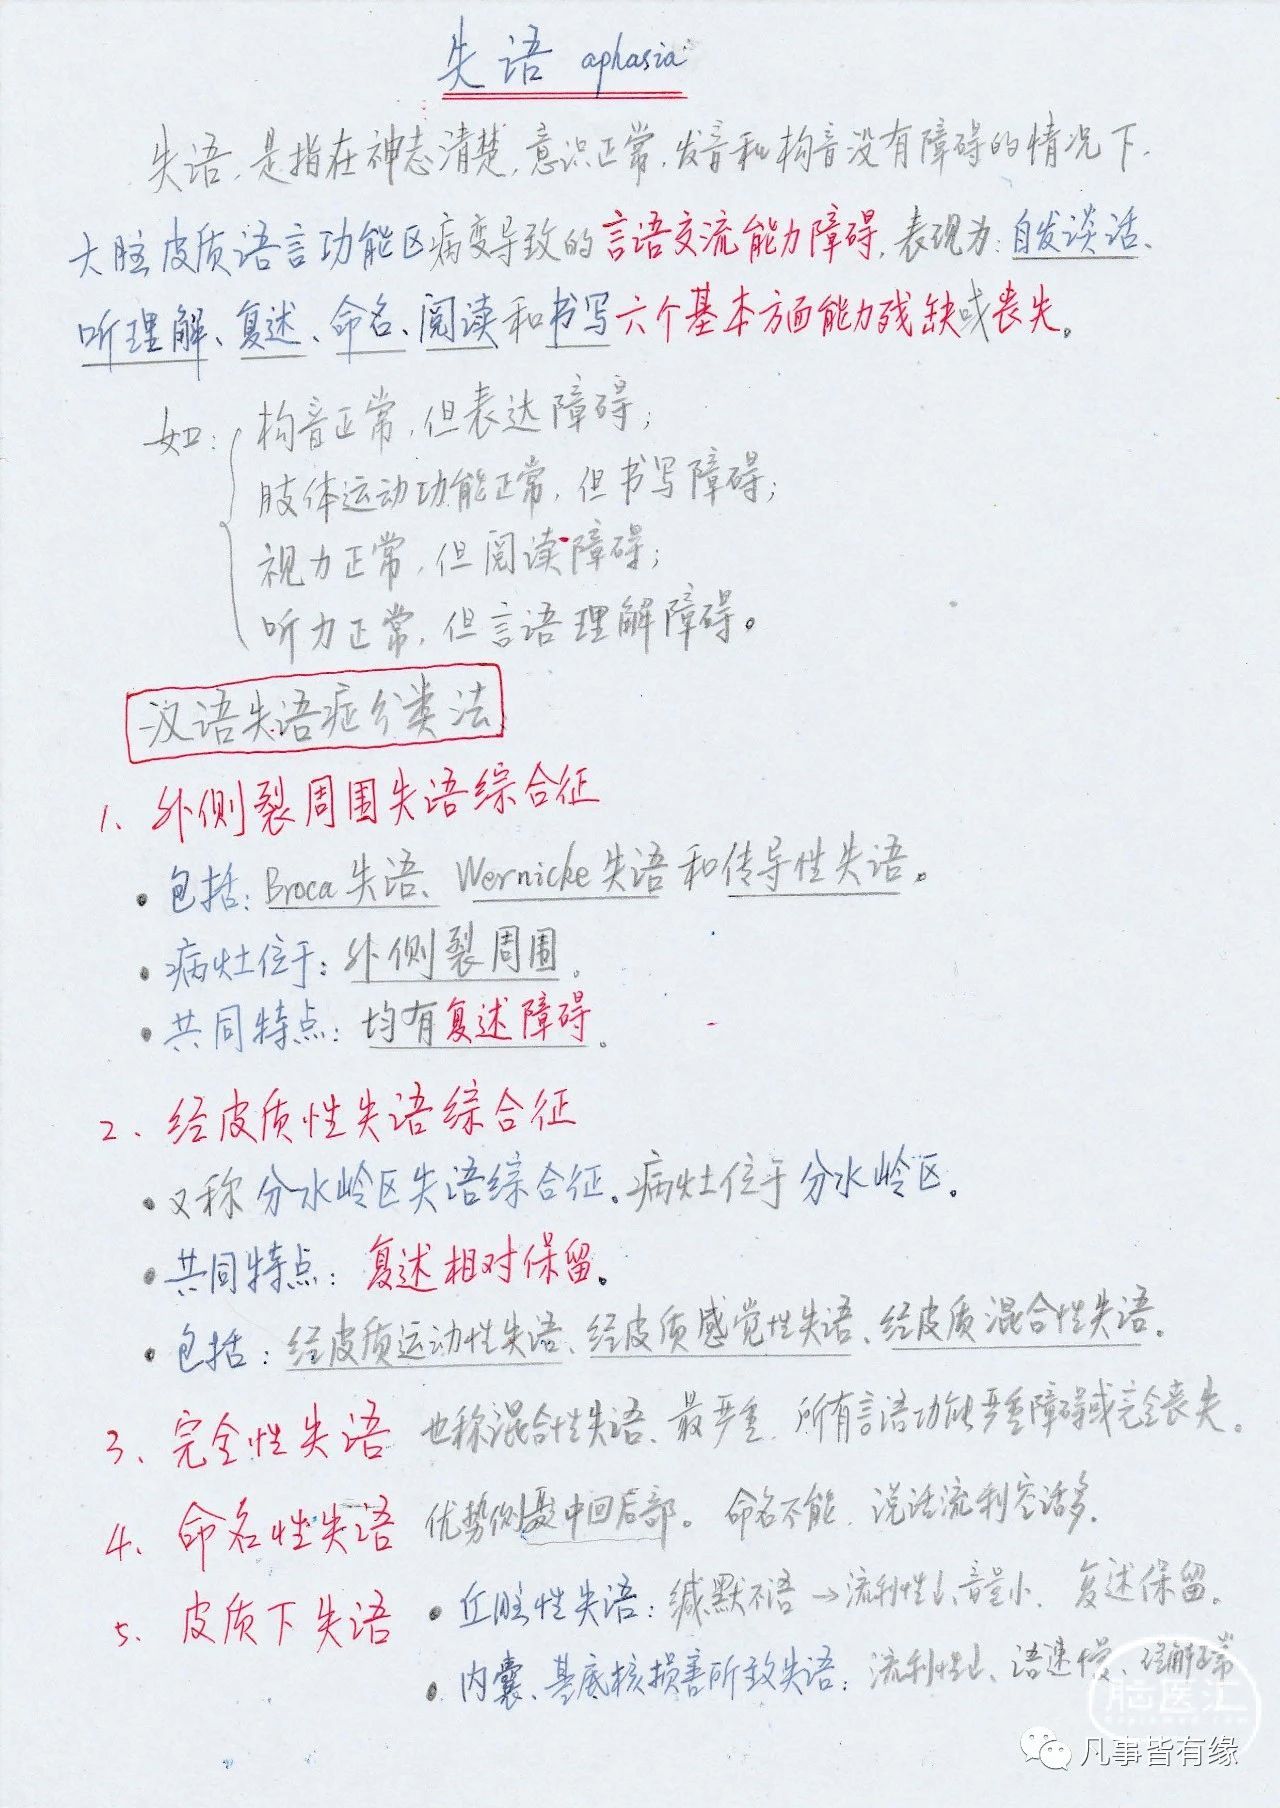 失语 aphasia
失语,是指在神志清楚,意识正常,发音和构音没有障碍的情况下,
大脑皮质语言功能区病变导致的言语交流能力障碍,表现为:自发谈话、
听理解、复述、命名、阅读和书写六个基本方面能力残缺或丧失。
如:
构音正常,但表达障碍;
肢体运动功能正常,但书写障碍;
视力正常,但阅读障碍;
听力正常,但言语理解障碍。
汉语失语症分类法
1、外侧裂周围失语综合征
·包括:Broca失语、Wernicke失语和传导性失语。
·病灶位于:外侧裂周围。
·共同特点:均有复述障碍。
2、经皮质性失语综合征
·又称分水岭区失语综合征,病灶位于分水岭区。
·共同特点:复述相对保留。
·包括:经皮质运动性失语、经皮质感觉性失语、经皮质混合性失语。
3、完全性失语 也称混合性失语、最严重,所有言语功能严重障碍或完全丧失。
4、命名性失语 优势侧颞中回后部。命名不能,说话流利空话多,
5、皮质下失语
·丘脑性失语:缄默不语→流利性↓、音量小、复述保留。
·内囊、基底核损害所致失语:流利性↓、语速慢、理解正常
脑医汇
凡事皆有缘